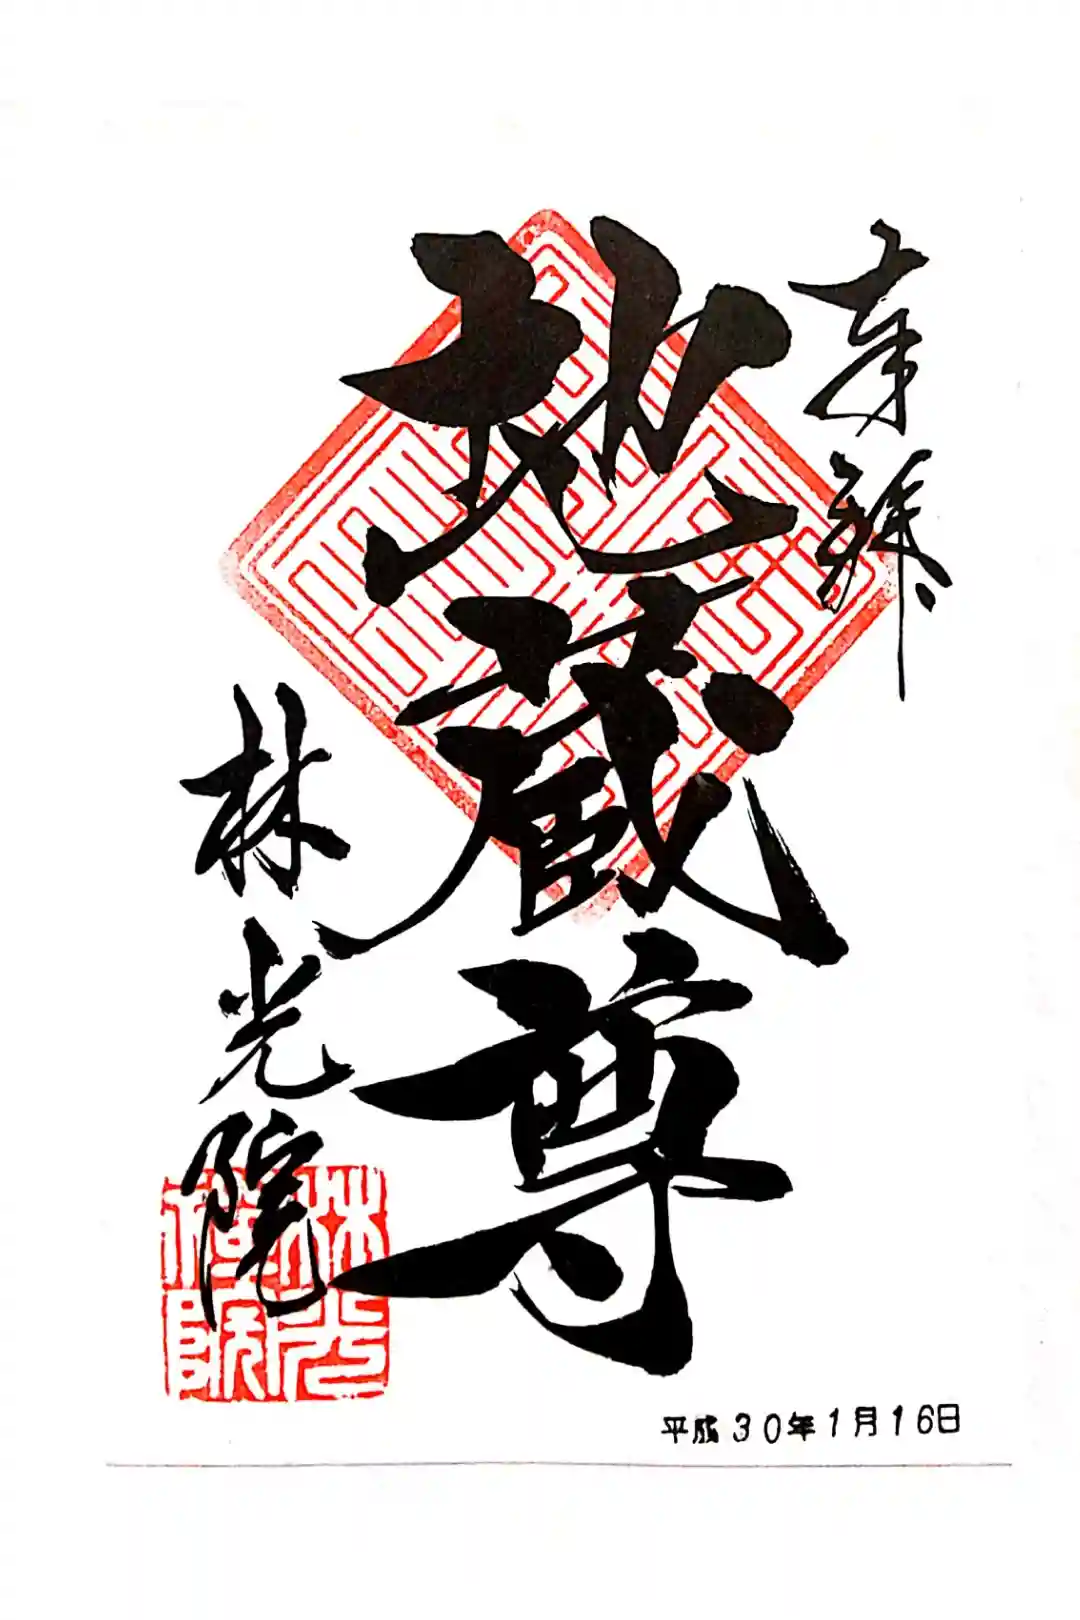 奉拝
地蔵尊
林光院
平成30年1月16日